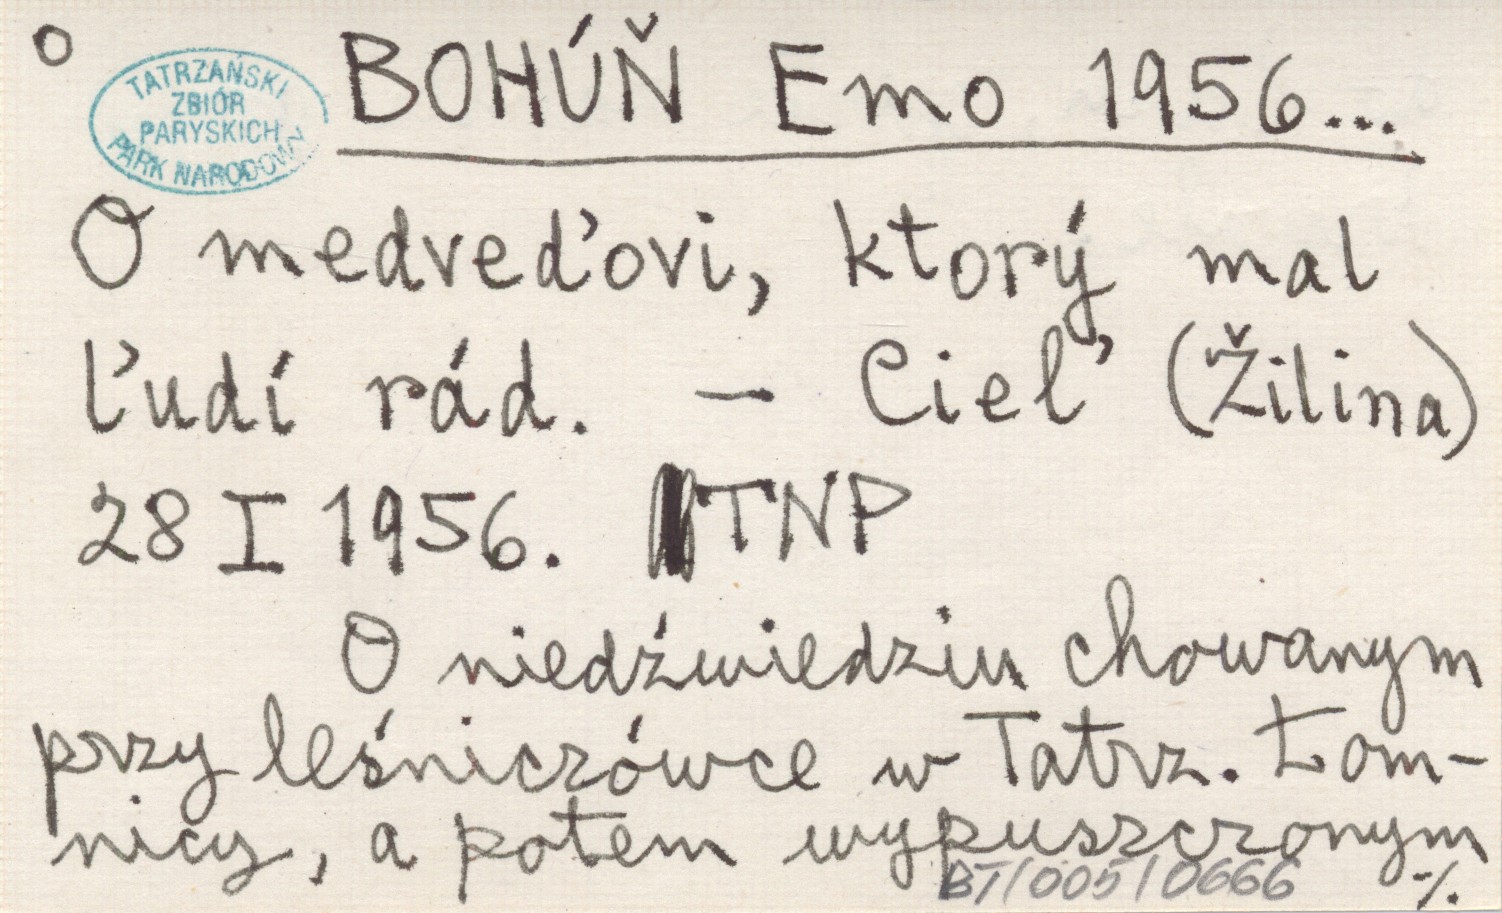 o
TATRZAŃSKI
ZBIÓR
PARYSKICH
PARK NARODOWY
BOHÚŇ Emo 1956...
O medveďovi, ktorý mal
ľudí rád. – Cieľ (Žilina)
28 I 1956. TNP
O niedźwiedziu chowanym
przy leśniczówce w Tatrz. Łom-
nicy, a potem wypuszczonym
BT/005/0666 ·/.